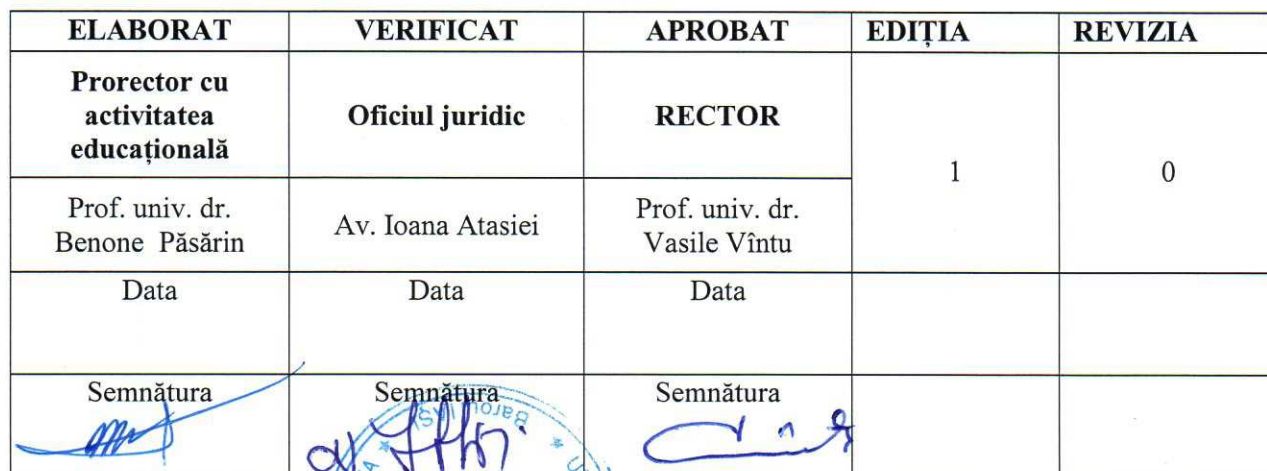 ELABORAT VERIFICAT APROBAT EDIȚIA REVIZIA
Prorector cu
activitatea
educațională
Oficiul juridic
RECTOR
1
0
Prof. univ. dr.
Benone Păsărin
Av. Ioana Atasiei
Prof. univ. dr.
Vasile Vîntu
Data Data Data
Semnătura Semnătura Semnătura
Baroul IAȘI